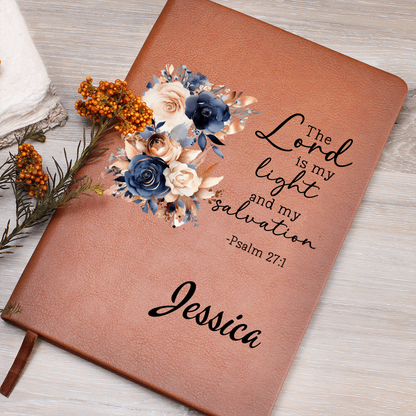 The
Lord
is my
light
and my
salvation
-Psalm 27:1
Jessica